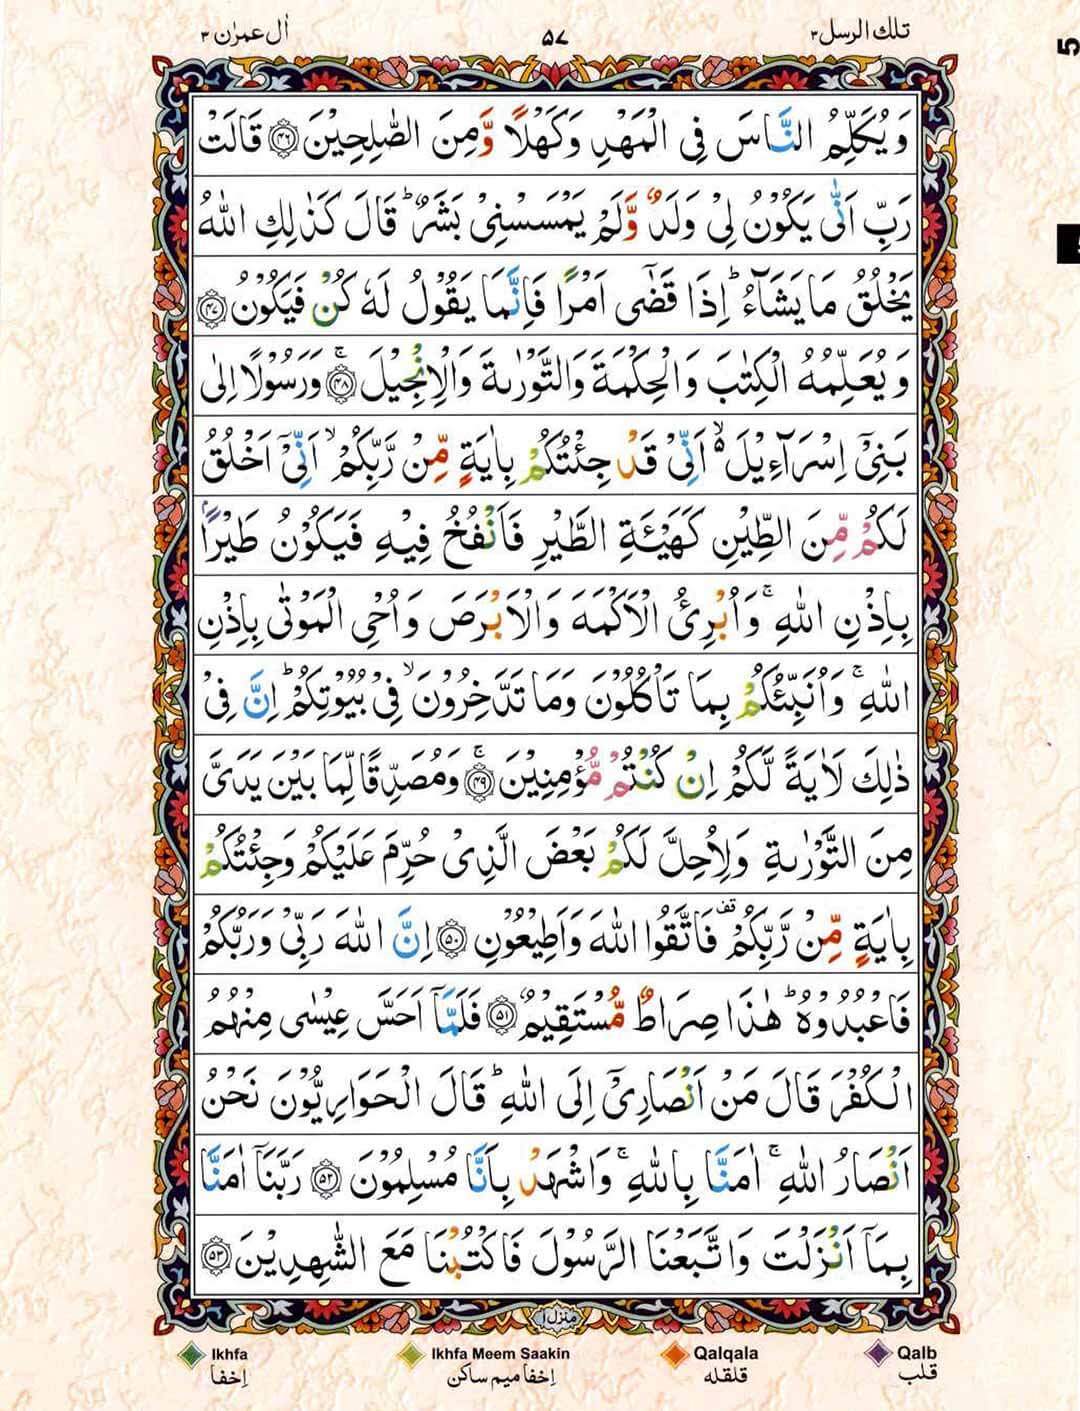 تلك الرسل ۳ ۵۷ اٰل عمرٰن ۳
5
وَيُكَلِّمُ النَّاسَ فِى الْمَهْدِ وَكَهْلًا وَّمِنَ الصّٰلِحِيْنَ ۝۴۶ قَالَتْ
رَبِّ اَنّٰى يَكُوْنُ لِىْ وَلَدٌ وَّلَمْ يَمْسَسْنِىْ بَشَرٌ ؕ قَالَ كَذٰلِكِ اللّٰهُ
يَخْلُقُ مَا يَشَآءُ ؕ اِذَا قَضٰٓى اَمْرًا فَاِنَّمَا يَقُوْلُ لَهٗ كُنْ فَيَكُوْنُ ۝۴۷
وَيُعَلِّمُهُ الْكِتٰبَ وَالْحِكْمَةَ وَالتَّوْرٰىةَ وَالْاِنْجِيْلَ ۚ۝۴۸ وَرَسُوْلًا اِلٰى
بَنِىْٓ اِسْرَآءِيْلَ ۙ۬ اَنِّىْ قَدْ جِئْتُكُمْ بِاٰيَةٍ مِّنْ رَّبِّكُمْ ۙ اَنِّىْٓ اَخْلُقُ
لَكُمْ مِّنَ الطِّيْنِ كَهَيْئَةِ الطَّيْرِ فَاَنْفُخُ فِيْهِ فَيَكُوْنُ طَيْرًۢا
بِاِذْنِ اللّٰهِ ۚ وَاُبْرِئُ الْاَكْمَهَ وَالْاَبْرَصَ وَاُحْىِ الْمَوْتٰى بِاِذْنِ
اللّٰهِ ۚ وَاُنَبِّئُكُمْ بِمَا تَاْكُلُوْنَ وَمَا تَدَّخِرُوْنَ ۙ فِىْ بُيُوْتِكُمْ ؕ اِنَّ فِىْ
ذٰلِكَ لَاٰيَةً لَّكُمْ اِنْ كُنْتُمْ مُّؤْمِنِيْنَ ۚ۝۴۹ وَمُصَدِّقًا لِّمَا بَيْنَ يَدَىَّ
مِنَ التَّوْرٰىةِ وَلِاُحِلَّ لَكُمْ بَعْضَ الَّذِىْ حُرِّمَ عَلَيْكُمْ وَجِئْتُكُمْ
بِاٰيَةٍ مِّنْ رَّبِّكُمْ قف فَاتَّقُوا اللّٰهَ وَاَطِيْعُوْنِ ۝۵۰ اِنَّ اللّٰهَ رَبِّىْ وَرَبُّكُمْ
فَاعْبُدُوْهُ ؕ هٰذَا صِرَاطٌ مُّسْتَقِيْمٌ ۝۵۱ فَلَمَّآ اَحَسَّ عِيْسٰى مِنْهُمُ
الْكُفْرَ قَالَ مَنْ اَنْصَارِىْٓ اِلَى اللّٰهِ ؕ قَالَ الْحَوَارِيُّوْنَ نَحْنُ
اَنْصَارُ اللّٰهِ ۚ اٰمَنَّا بِاللّٰهِ ۚ وَاشْهَدْ بِاَنَّا مُسْلِمُوْنَ ۝۵۲ رَبَّنَآ اٰمَنَّا
بِمَآ اَنْزَلْتَ وَاتَّبَعْنَا الرَّسُوْلَ فَاكْتُبْنَا مَعَ الشّٰهِدِيْنَ ۝۵۳
منزل ۱
Ikhfa Ikhfa Meem Saakin Qalqala Qalb
اِخفا اِخفا میم ساکن قلقله قلب